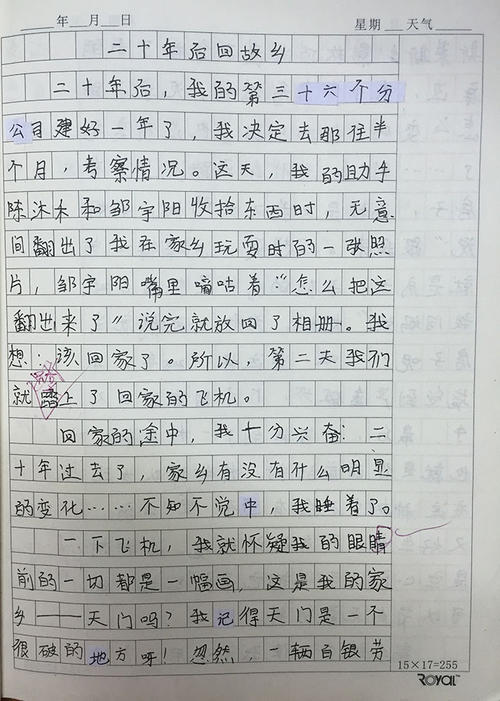 年 月 日 星期 天气
二十年后回故乡
二十年后，我的第三十六个分
公司建好一年了，我决定去那往半
个月，考察情况。这天，我的助手
陈沐木和邹宇阳收拾东西时，无意
间翻出了我在家乡玩耍时的一张照
片，邹宇阳嘴里嘀咕着“怎么把这
翻出来了”说完就放回了相册。我
想：该回家了。所以，第二天我们
就踏上了回家的飞机。
回家的途中，我十分兴奋：二
十年过去了，家乡有没有什么明显
的变化……不知不觉中，我睡着了。
一下飞机，我就怀疑我的眼睛
前的一切都是一幅画，这是我的家
乡——天门吗？我记得天门是一个
很破的地方呀！忽然，一辆白银劳
15×17=255
ROYAL